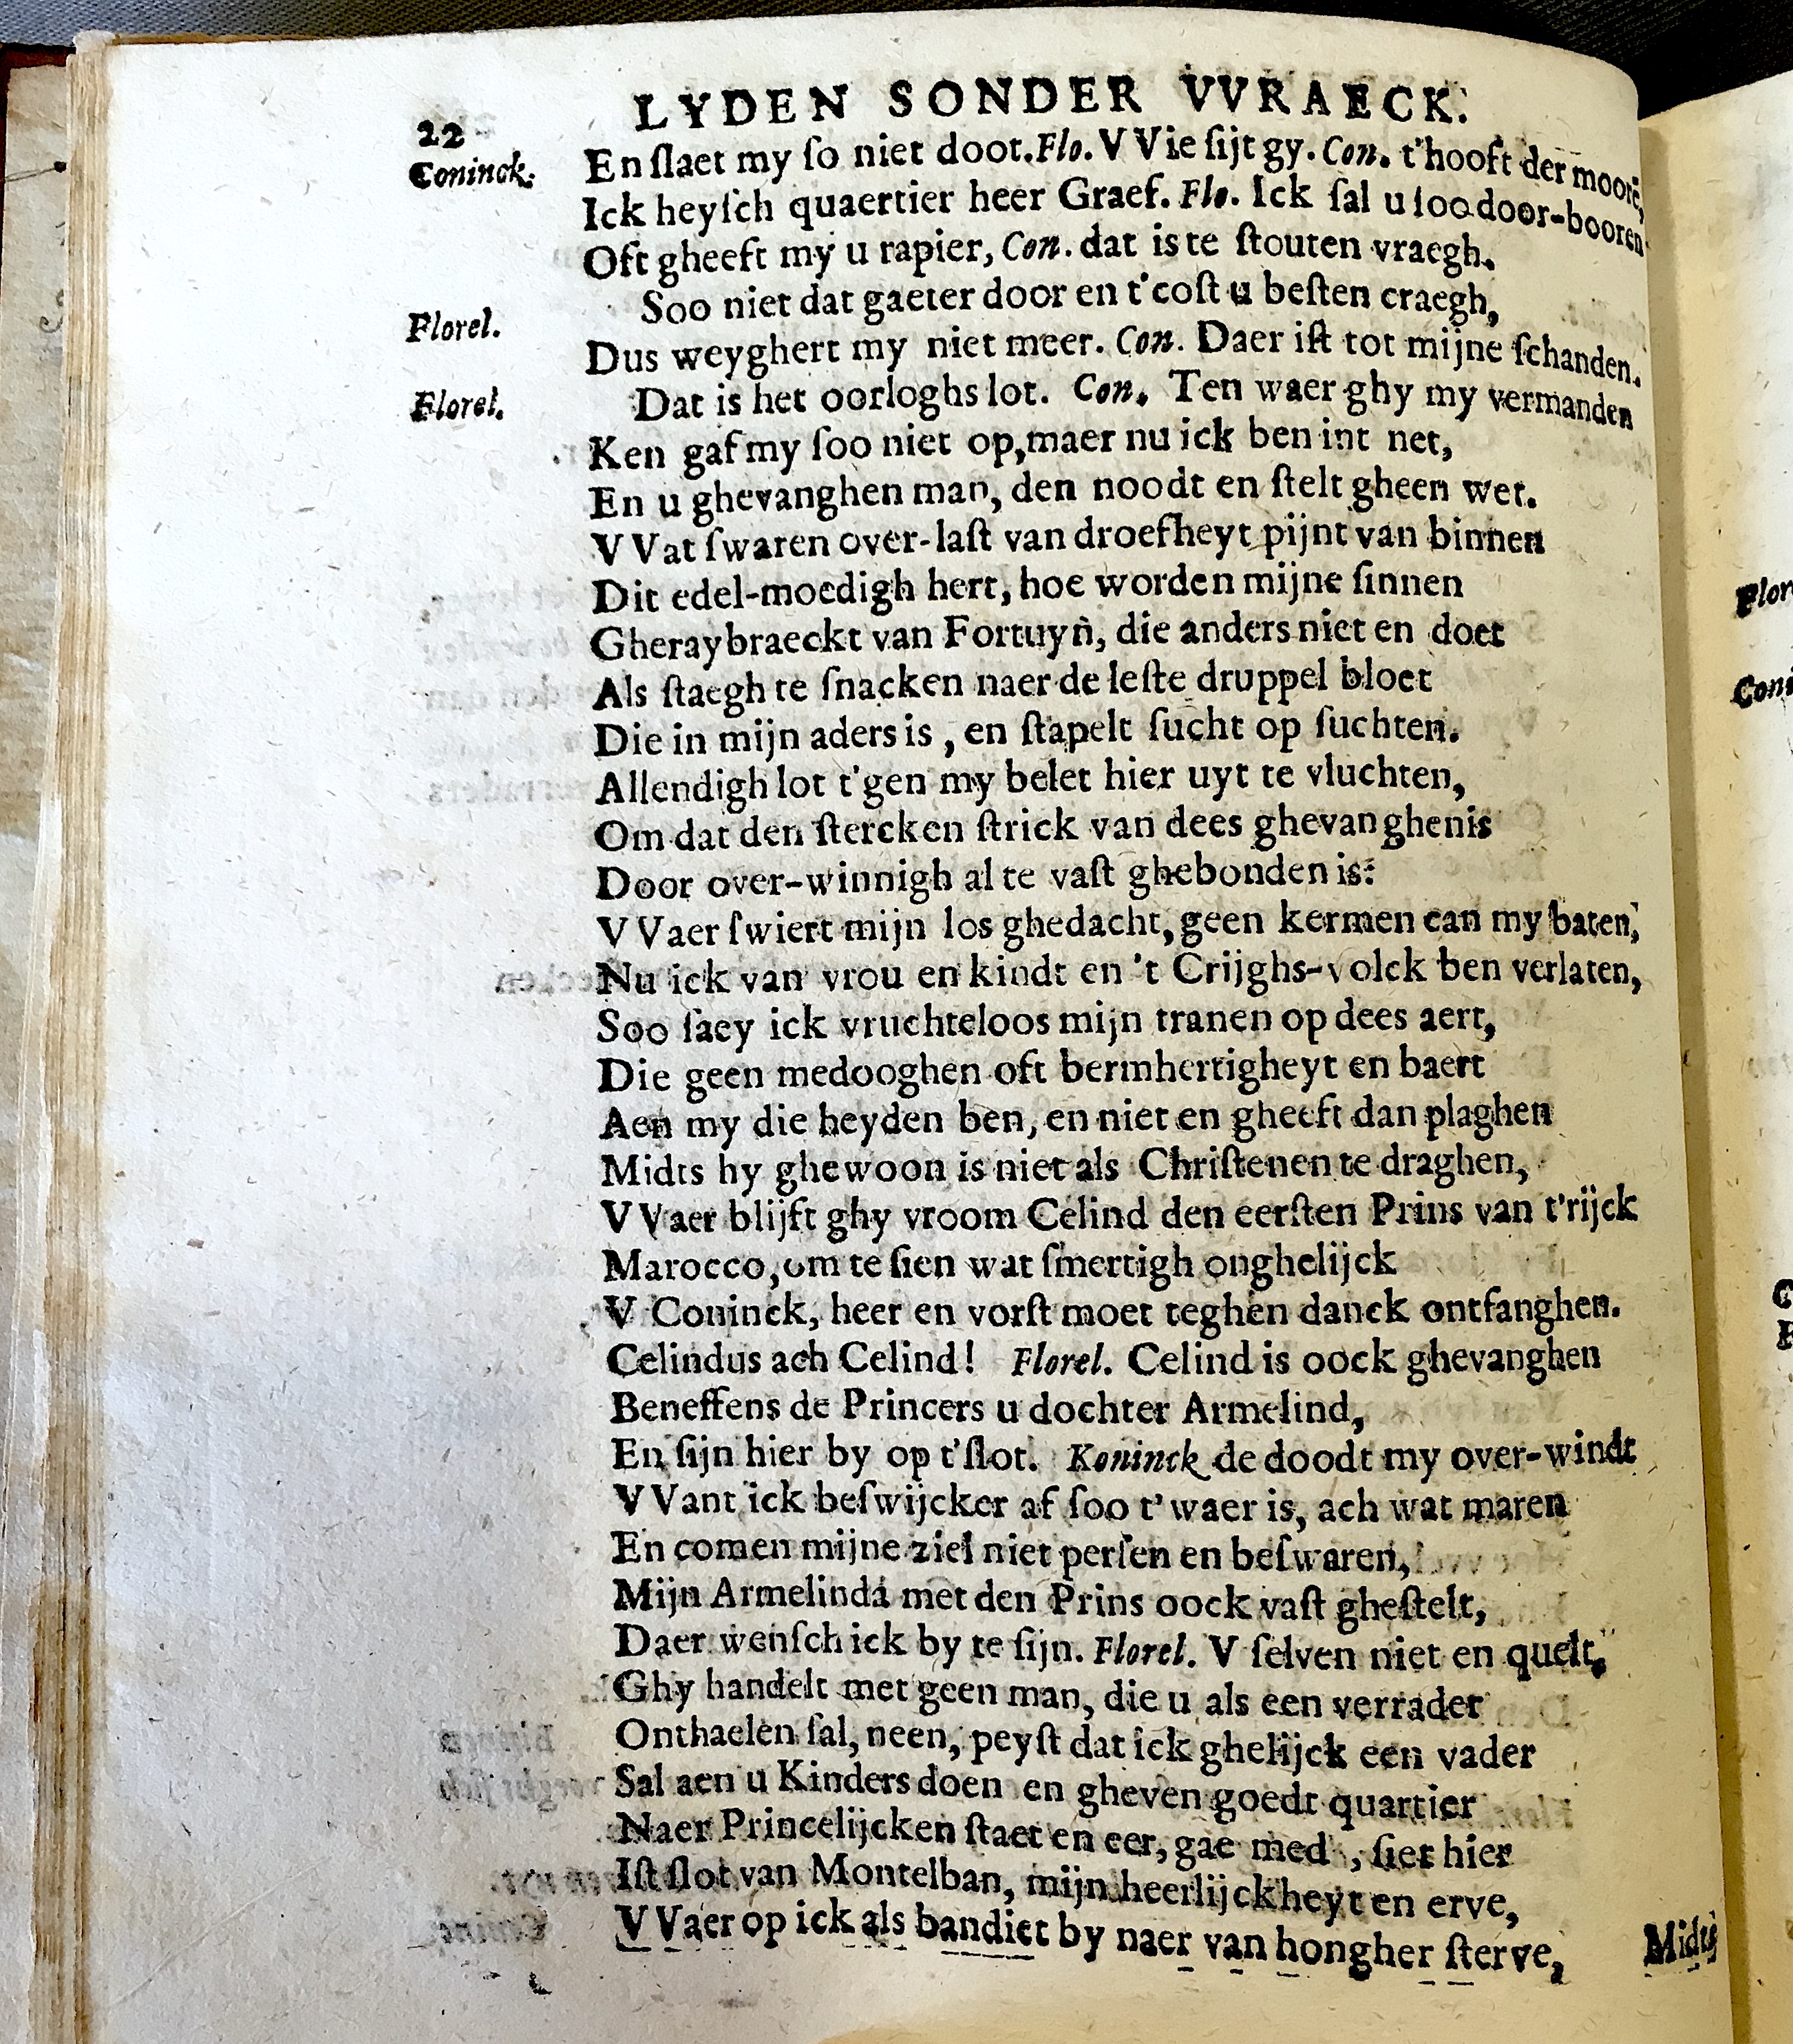 22 LYDEN SONDER VVRAECK.
Coninck. En ſlaet my ſo niet doot. Flo. VVie ſijt gy. Con. t'hooft der moorē,
Ick heyſch quaertier heer Graef. Flo. Ick ſal u ſoo door-booren
Oft gheeft my u rapier, Con. dat is te ſtouten vraegh.
Florel. Soo niet dat gaeter door en t'coſt u beſten craegh,
Dus weyghert my niet meer. Con. Daer iſt tot mijne ſchanden.
Florel. Dat is het oorloghs lot. Con. Ten waer ghy my vermanden
Ken gaf my ſoo niet op, maer nu ick ben int net,
En u ghevanghen man, den noodt en ſtelt gheen wet.
VVat ſwaren over-laſt van droefheyt pijnt van binnen
Dit edel-moedigh hert, hoe worden mijne ſinnen
Gheraybraeckt van Fortuyn, die anders niet en doet
Als ſtaegh te ſnacken naer de leſte druppel bloet
Die in mijn aders is, en ſtapelt ſucht op ſuchten.
Allendigh lot t'gen my belet hier uyt te vluchten,
Om dat den ſtercken ſtrick van dees ghevanghenis
Door over-winnigh al te vaſt ghebonden is:
VVaer ſwiert mijn los ghedacht, geen kermen can my baten,
Nu ick van vrou en kindt en 't Crijghs-volck ben verlaten,
Soo ſaey ick vruchteloos mijn tranen op dees aert,
Die geen medooghen oft bermhertigheyt en baert
Aen my die heyden ben, en niet en gheeft dan plaghen
Midts hy ghewoon is niet als Chriſtenen te draghen,
VVaer blijft ghy vroom Celind den eerſten Prins van t'rijck
Marocco, om te ſien wat ſmertigh onghelijck
V Coninck, heer en vorſt moet teghen danck ontfanghen.
Celindus ach Celind! Florel. Celind is oock ghevanghen
Beneffens de Princers u dochter Armelind,
En ſijn hier by op t'ſlot. Koninck de doodt my over-windt
VVant ick beſwijcker af ſoo t'waer is, ach wat maren
En comen mijne ziel niet perſen en beſwaren,
Mijn Armelinda met den Prins oock vaſt gheſtelt,
Daer wenſch ick by te ſijn. Florel. V ſelven niet en quelt,
Ghy handelt met geen man, die u als een verrader
Onthaelen ſal, neen, peyſt dat ick ghelijck een vader
Sal aen u Kinders doen en gheven goedt quartier
Naer Princelijcken ſtaet en eer, gae med', ſiet hier
Iſt ſlot van Montelban, mijn heerlijckheyt en erve,
VVaer op ick als bandiet by naer van hongher ſterve,
Midts